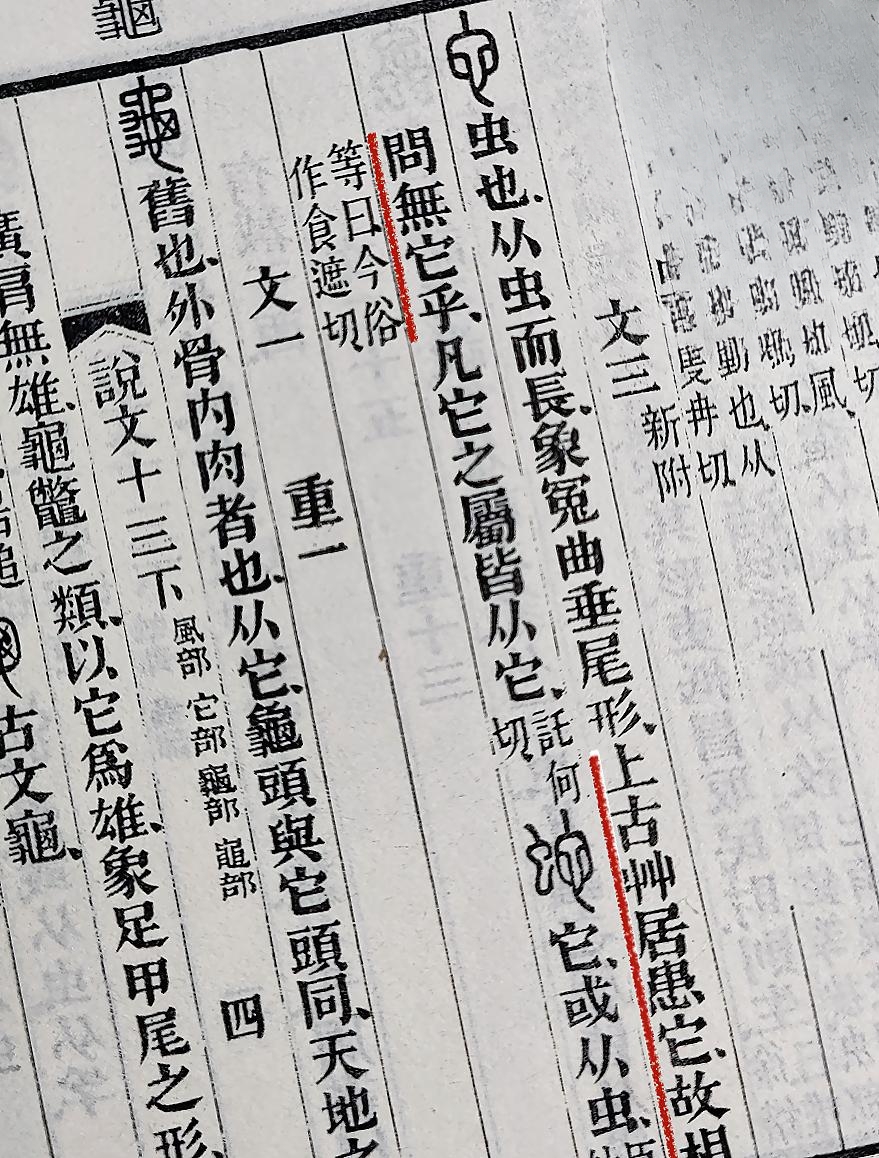 文三
新附
虫也、从虫而長、象冤曲垂尾形、上古艸居患它、故相
問無它乎、凡它之屬皆从它、託何切
它、或从虫、
等曰今俗
作食遮切
文一 重一
舊也、外骨內肉者也、从它、龜頭與它頭同、天地之
說文十三下 風部 它部 龜部 黽部 四
廣肩無雄、龜鼈之類、以它爲雄、象足甲尾之形、
古文龜、